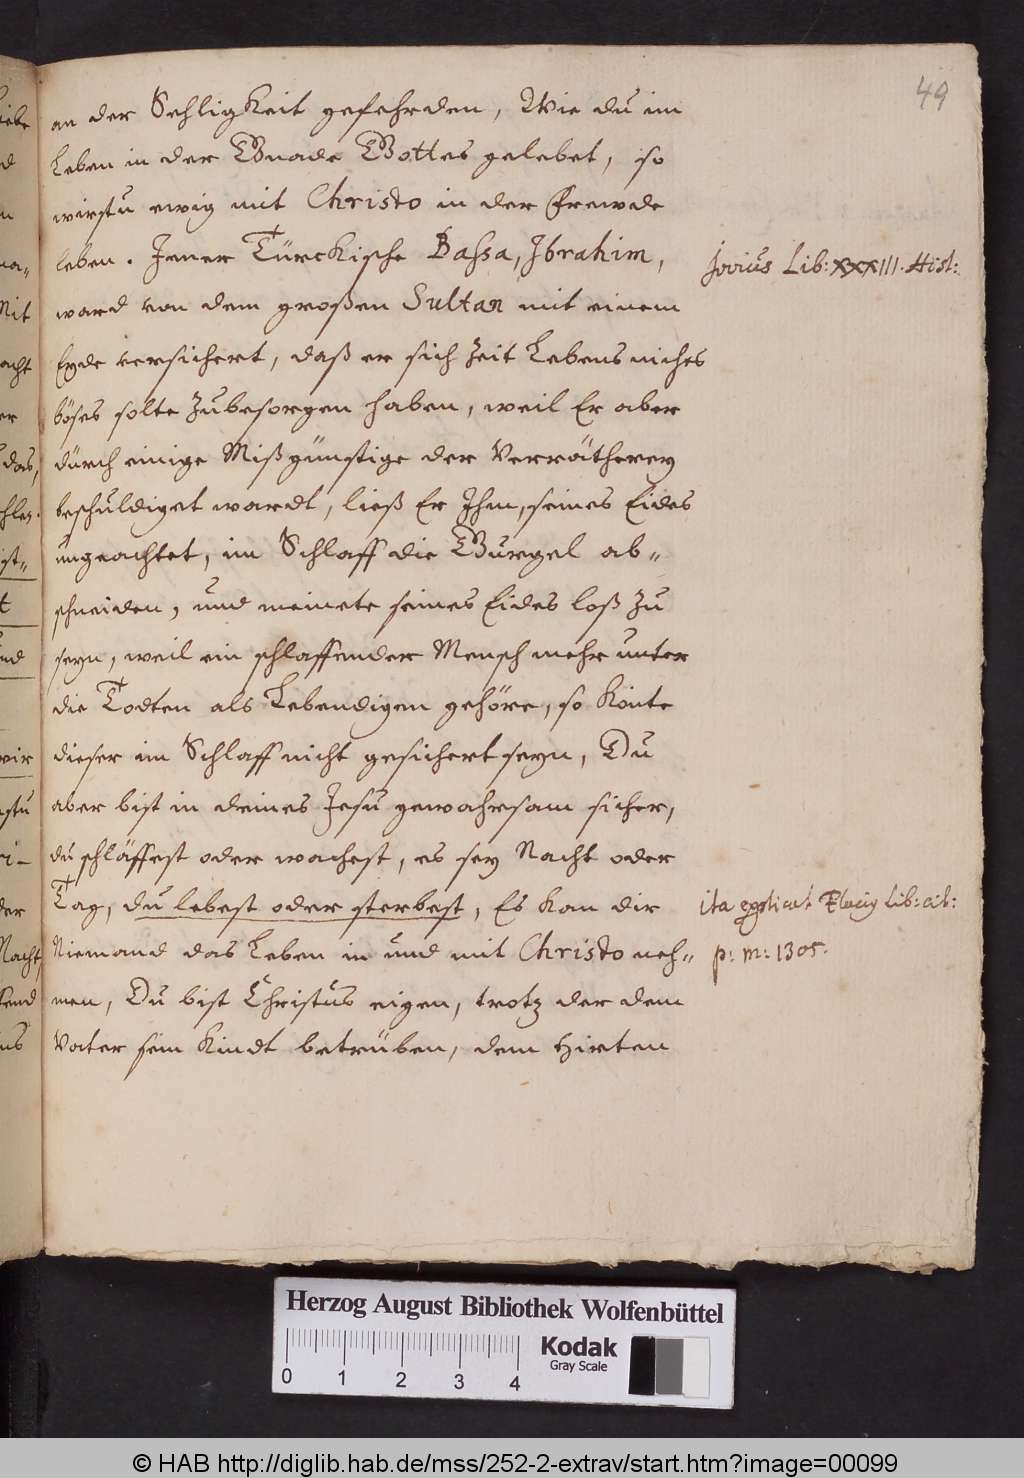 49
an der Sehligkeit gefehrden, Wie du im
Leben in der Gnade Gottes gelebet, so
wirstu ewig mit Christo in der Frewde
leben. Jener Türckische Baßa, Ibrahim,
Jovius Lib: XXXIII. Hist:
ward von dem großen Sultan mit einem
Eyde versichert, daß er sich Zeit Lebens nichts
böses solte Zubesorgen haben, weil Er aber
durch einige Mißgünstige der Verrätherey
beschuldiget wardt, ließ Er Ihm, seines Eides
ungeachtet, im Schlaff die Gurgel ab„
schneiden, und meinete seines Eides loß zu
seyn, weil ein schlaffender Mensch mehr unter
die Todten als Lebendigen gehöre, so konte
dieser im Schlaff nicht gesichert seyn, Du
aber bist in deines Jesu gewahrsam sicher,
du schläffest oder wachest, es sey Nacht oder
Tag, du lebest oder sterbest, Es kan dir
ita Lib: cit:
Niemand das Leben in und mit Christo neh„
p: m: 1305.
men, Du bist Christus eigen, trotz der dem
Vater sein Kindt betrüben, dem Hirten
Herzog August Bibliothek Wolfenbüttel
Kodak
Gray Scale
0 1 2 3 4
© HAB http://diglib.hab.de/mss/252-2-extrav/start.htm?image=00099